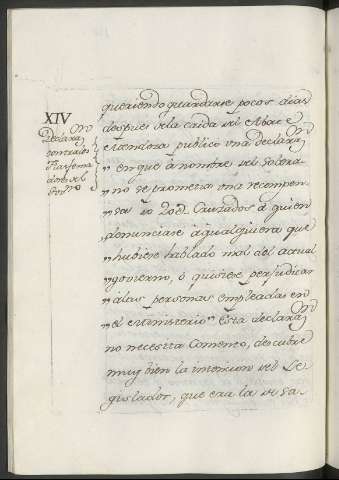 XIV
Declarazn
contra los
Blasfema
dores del
Govno
queriendo guardarse pocos dias
despues dela caida del Abate
extendiose publico vna Declarazn
"en que à nombre del Sobera
"no se prometia vna recompen
"sa de 20d. Cruzados à quien
"denunciase à qualquiera que
"hubiere hablado mal del actual
"govierno, ò quisiese perjudicar
"àlas personas empleadas en
"el Ministerio" Esta declarazn
no necesita Comento, descubre
muy bien la intencion del Le
gislador, que era la de sa-